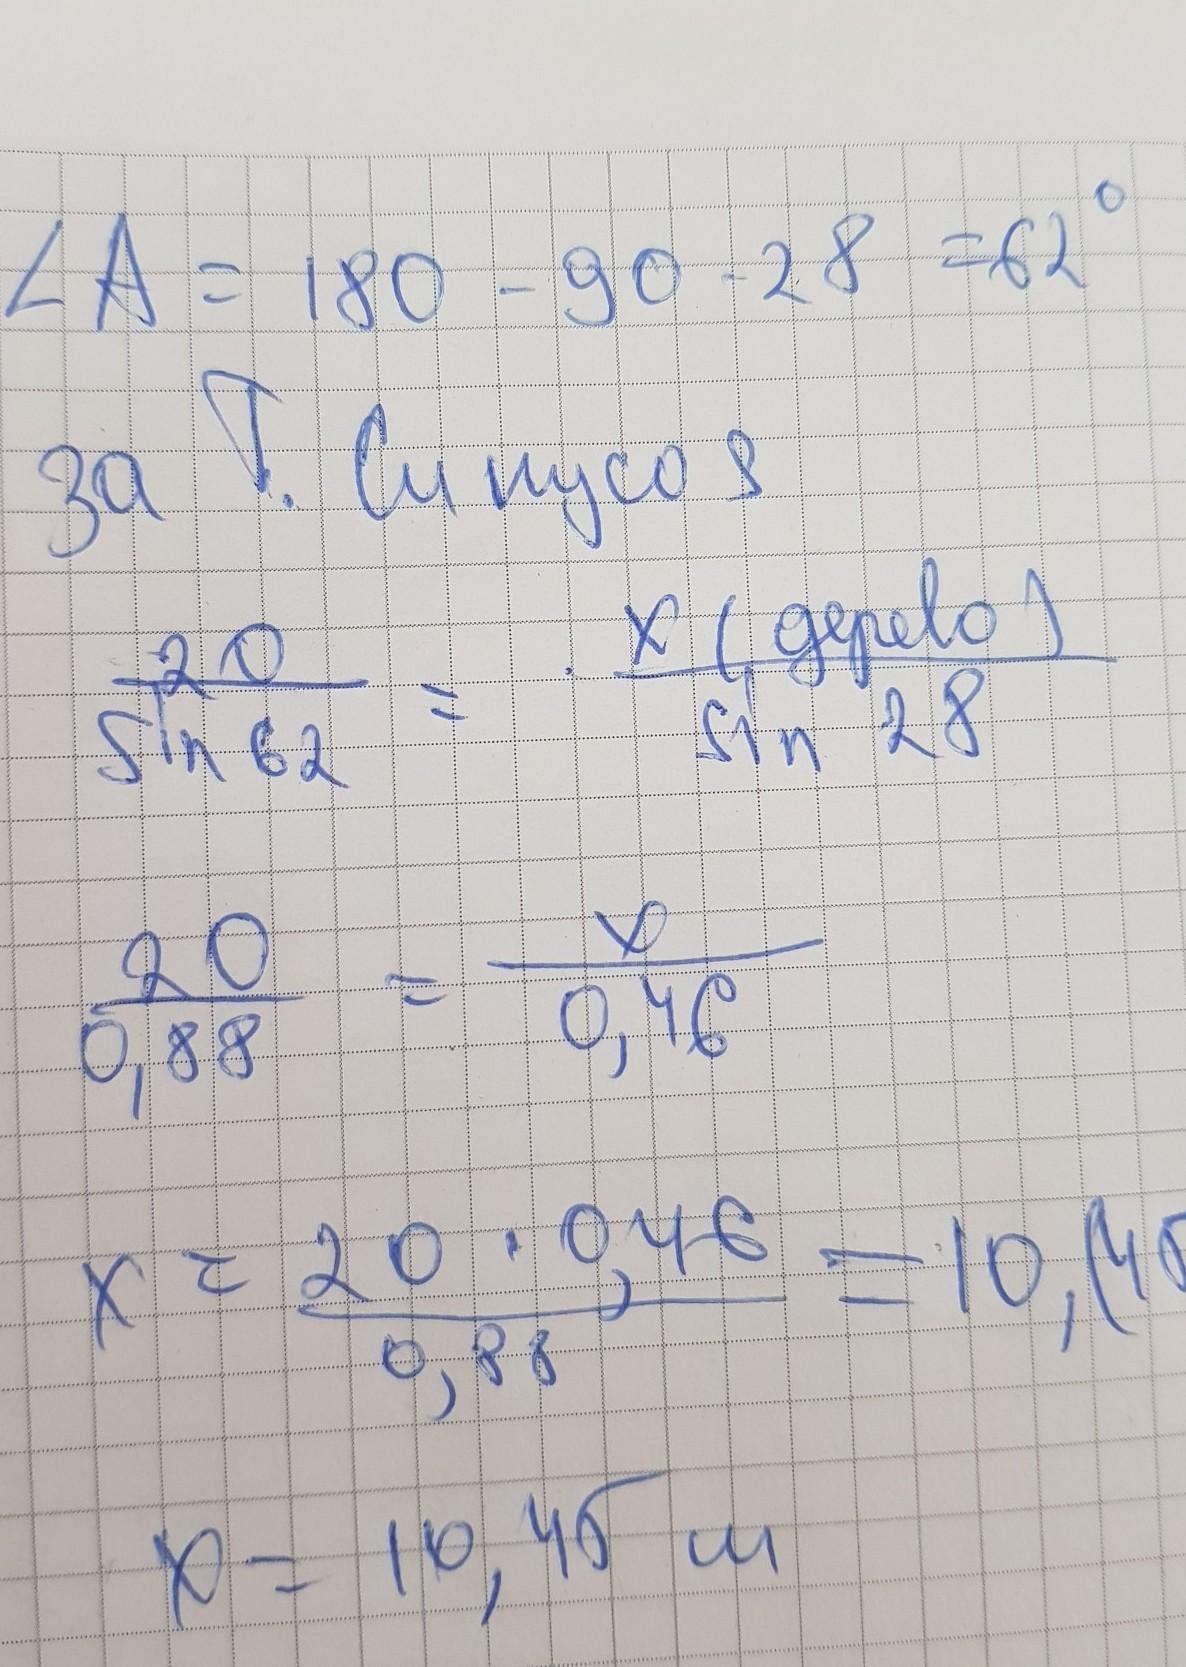 ∠A = 180 - 90 - 28 = 62°
За Т. Синусов
20 / sin 62 = x (дерево) / sin 28
20 / 0,88 = x / 0,46
x = 20 · 0,46 / 0,88 = 10,45
x = 10,45 м